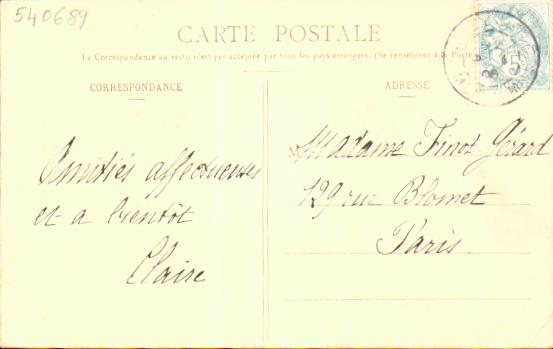 540689
CARTE POSTALE
La Correspondance au recto n'est pas acceptée par tous les pays étrangers. (Se renseigner à la Poste
CORRESPONDANCE
ADRESSE
Amitiés affectueuses
et a bientôt
Claire
Madame Finot-Gérard
129 rue Blomet
Paris
5